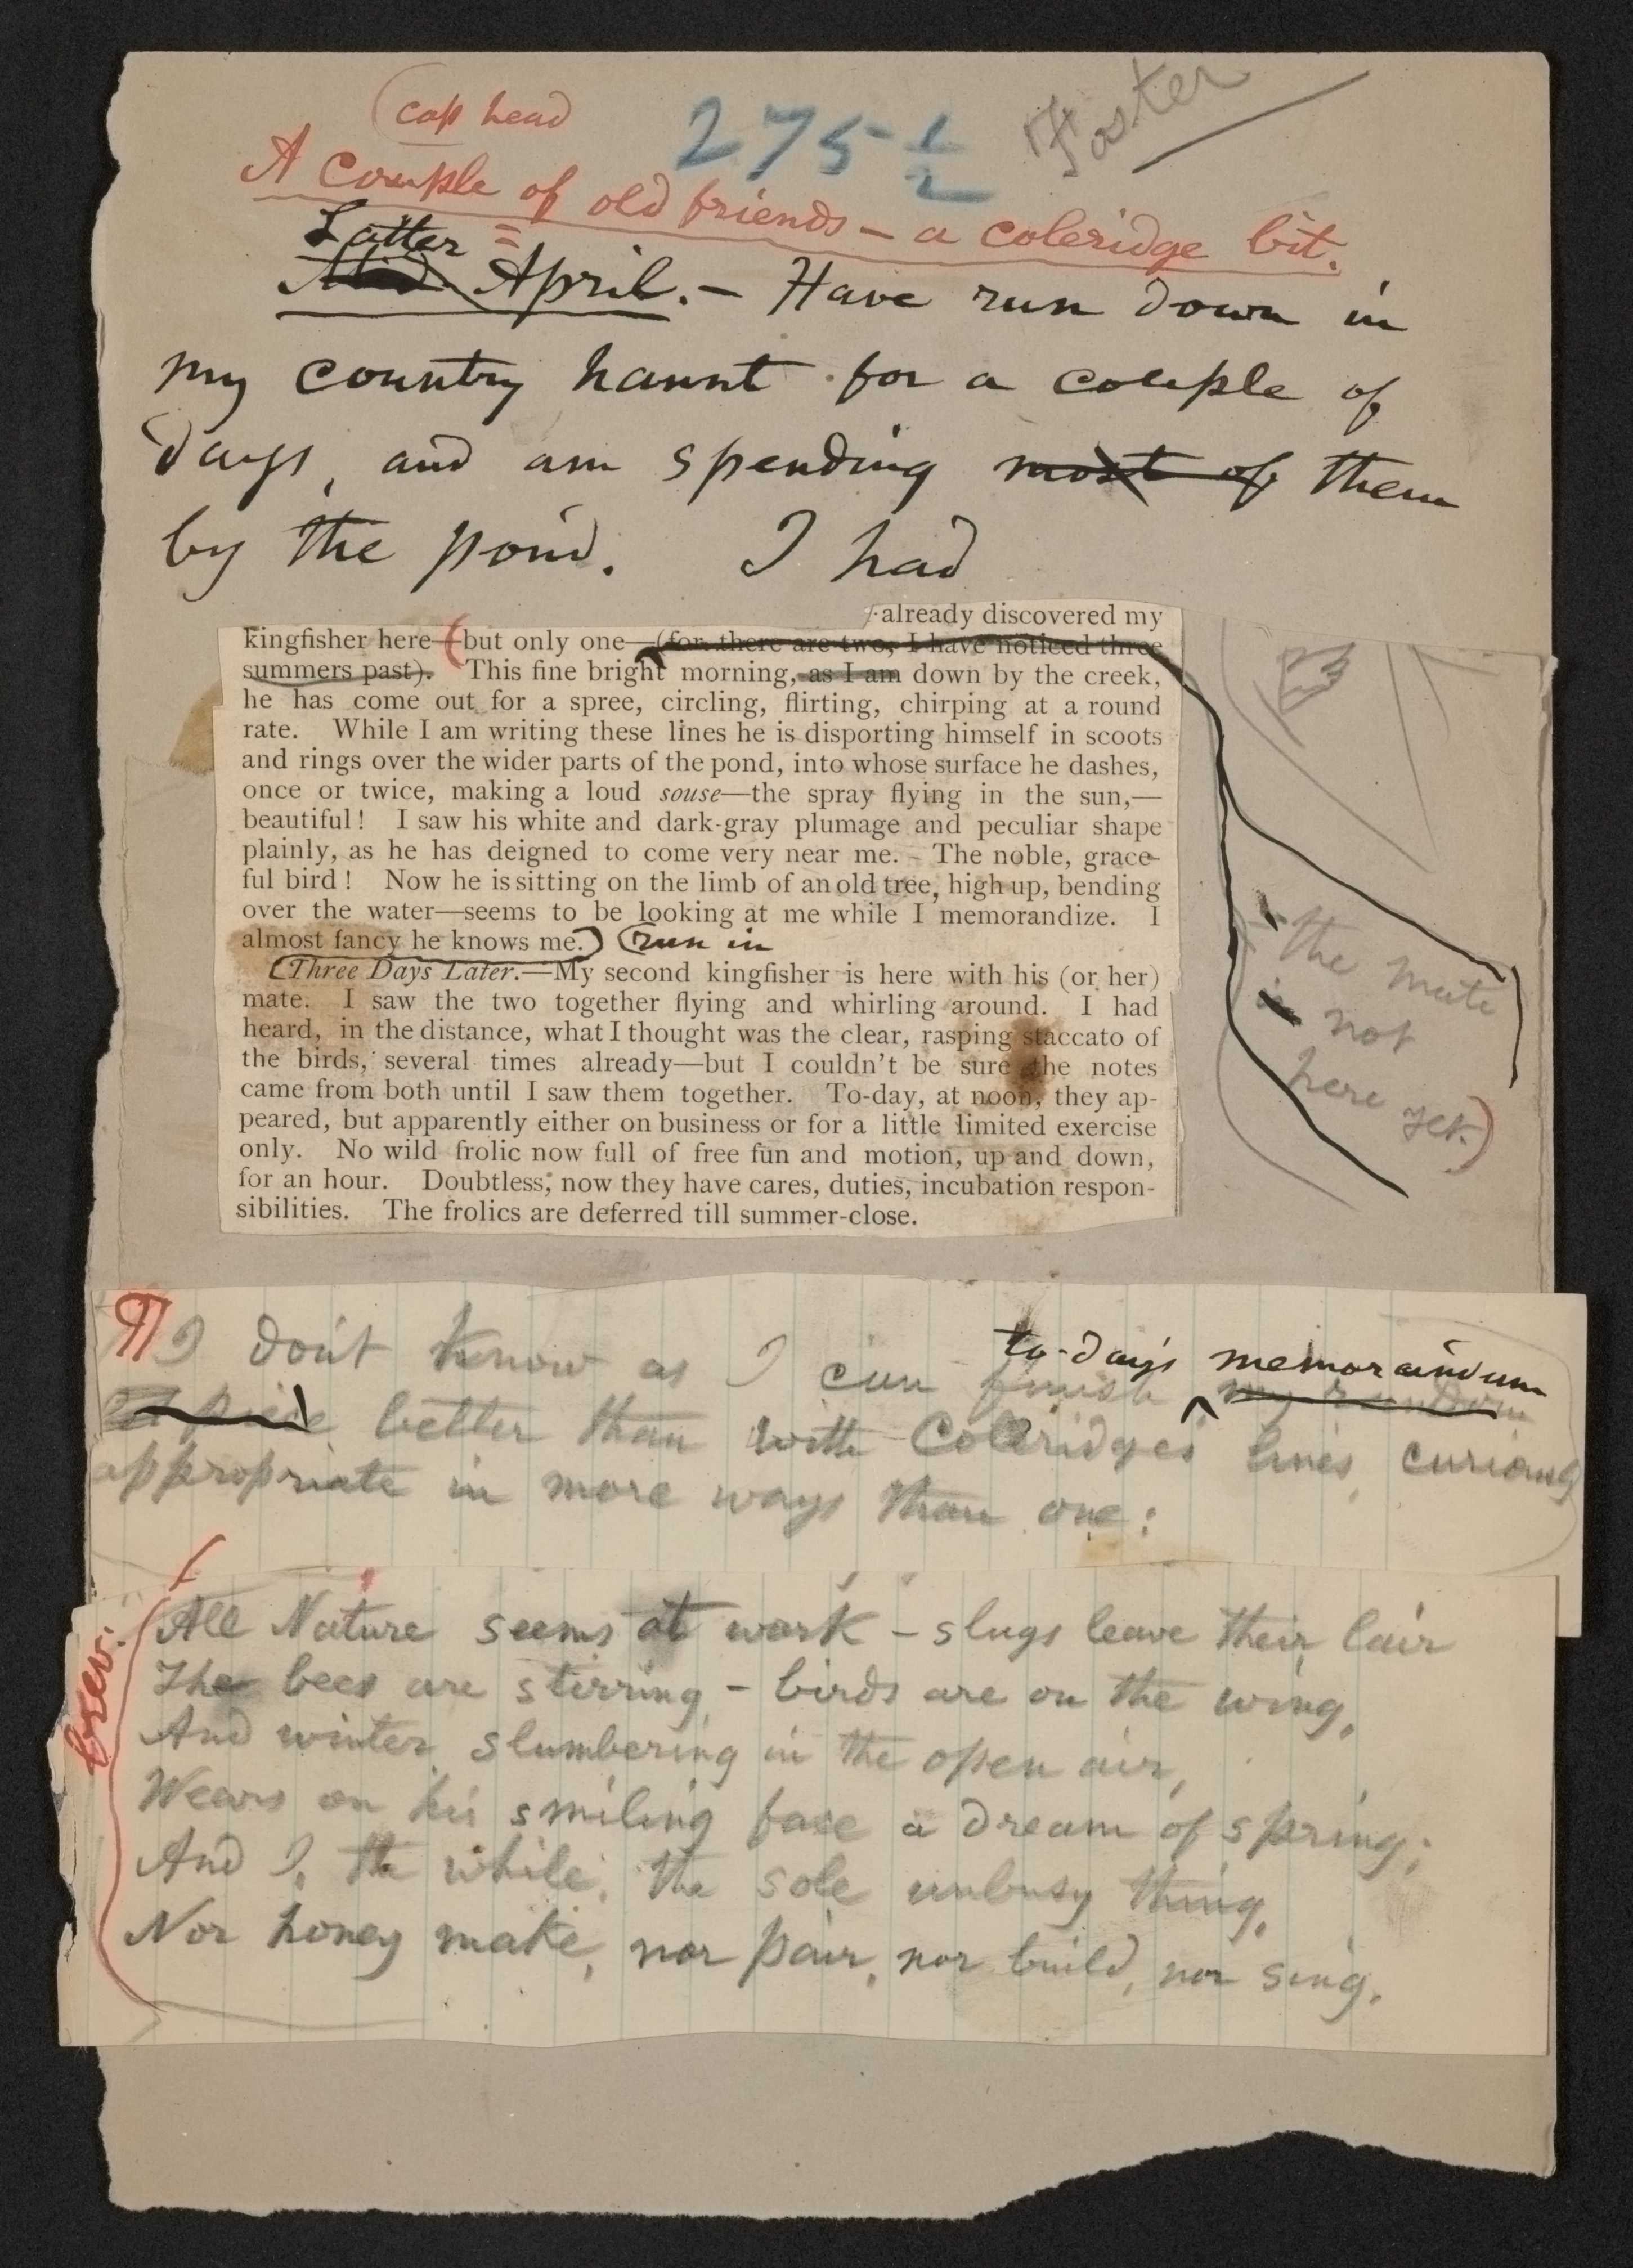 cap head
275 1/2
Foster
A Couple of old friends – a coleridge bit.
Latter
April. – Have run down in
my country haunt for a couple of
days, and am spending most of them
by the pond. I had
already discovered my
kingfisher here—(but only one—(for there are two, I have noticed three
summers past). This fine bright morning, as I am down by the creek,
he has come out for a spree, circling, flirting, chirping at a round
rate. While I am writing these lines he is disporting himself in scoots
and rings over the wider parts of the pond, into whose surface he dashes,
once or twice, making a loud souse—the spray flying in the sun,—
beautiful! I saw his white and dark-gray plumage and peculiar shape
plainly, as he has deigned to come very near me. The noble, grace-
ful bird! Now he is sitting on the limb of an old tree, high up, bending
over the water—seems to be looking at me while I memorandize. I
almost fancy he knows me.) (run in
Three Days Later.—My second kingfisher is here with his (or her)
mate. I saw the two together flying and whirling around. I had
heard, in the distance, what I thought was the clear, rasping staccato of
the birds, several times already—but I couldn't be sure the notes
came from both until I saw them together. To-day, at noon, they ap-
peared, but apparently either on business or for a little limited exercise
only. No wild frolic now full of free fun and motion, up and down,
for an hour. Doubtless, now they have cares, duties, incubation respon-
sibilities. The frolics are deferred till summer-close.
the mate
is not
here yet.)
¶ I don't know as I can finish
to-day's memorandum
my random
piece better than with Coleridge's lines, curiously
appropriate in more ways than one:
brev.
All Nature seems at work – slugs leave their lair
The bees are stirring – birds are on the wing,
And winter slumbering in the open air,
Wears on his smiling face a dream of spring;
And I, the while, the sole unbusy thing,
Nor honey make, nor pair, nor build, nor sing.